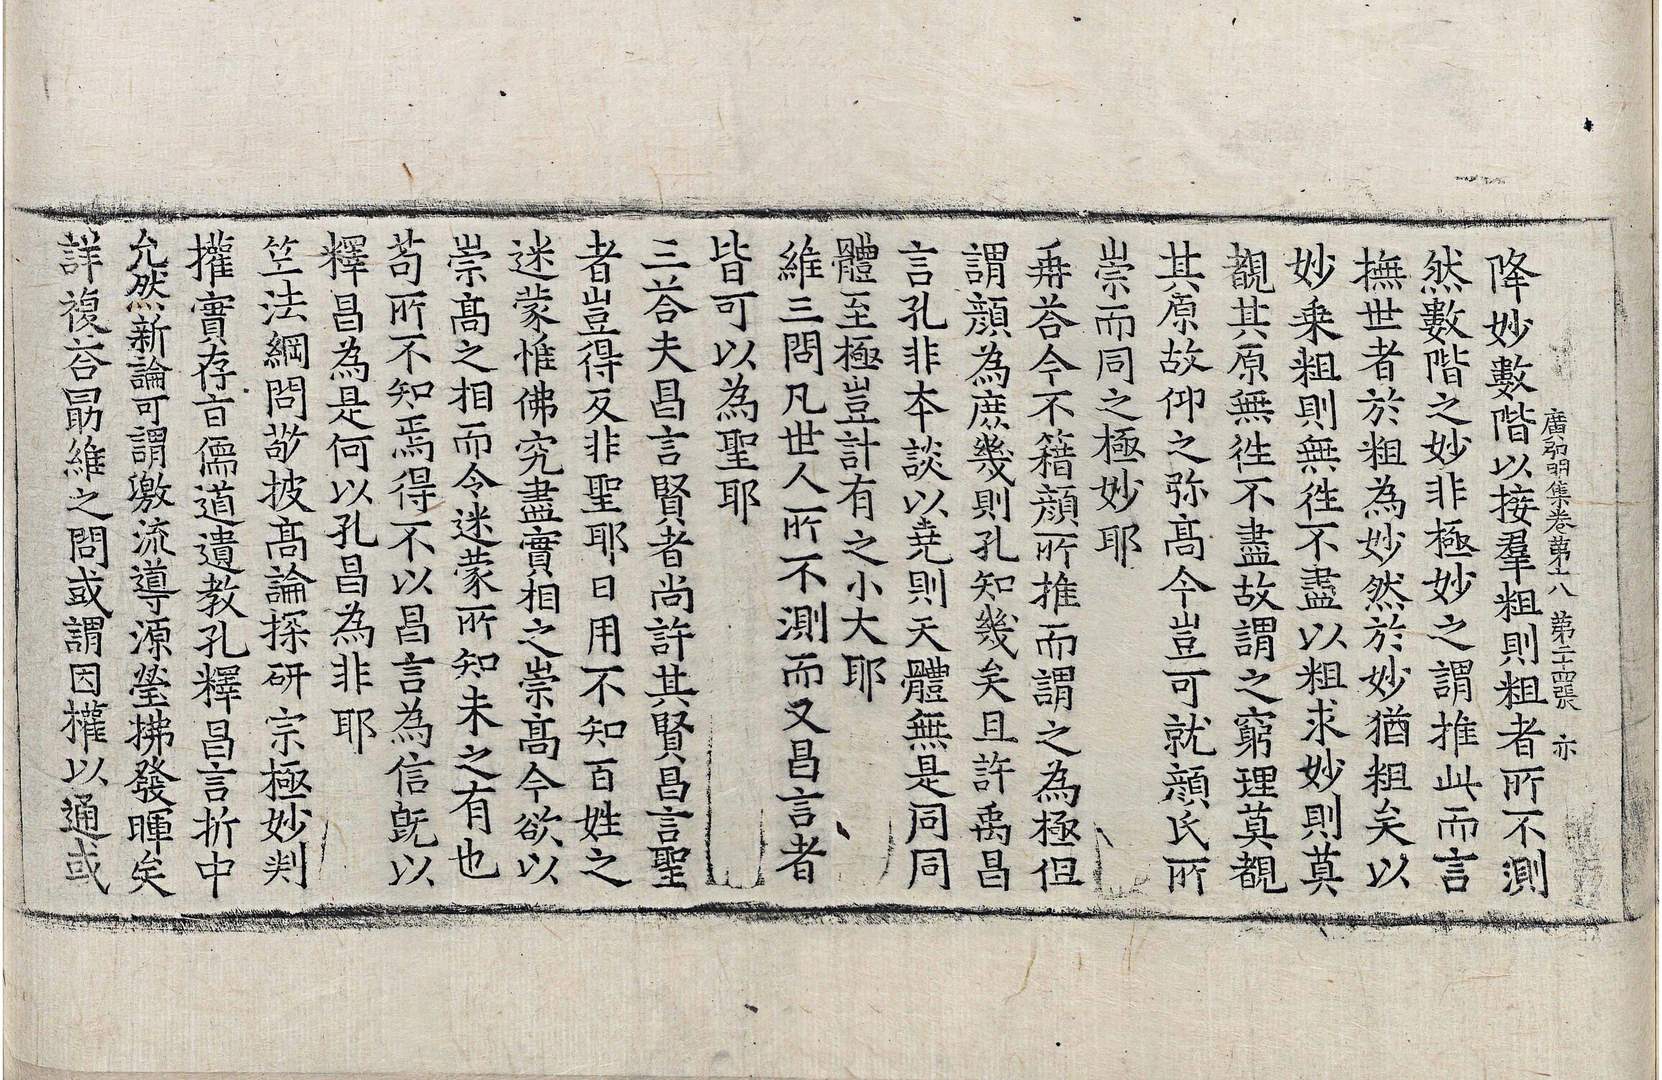 廣弘明集卷第十八 第二十四張 亦
降妙數階以接羣粗則粗者所不測
然數階之妙非極妙之謂推此而言
撫世者於粗為妙然於妙猶粗矣以
妙乗粗則無徃不盡以粗求妙則莫
覩其原無徃不盡故謂之窮理莫覩
其原故仰之弥髙今豈可就顔氏所
崇而同之極妙耶
再荅今不籍顔所推而謂之為極但
謂顔為庶幾則孔知幾矣且許禹昌
言孔非本談以堯則天體無是同同
體至極豈計有之小大耶
維三問凡世人所不測而又昌言者
皆可以為聖耶
三荅夫昌言賢者尚許其賢昌言聖
者豈得反非聖耶日用不知百姓之
迷蒙惟佛究盡實相之崇髙今欲以
崇髙之相而令迷蒙所知未之有也
苟所不知焉得不以昌言為信旣以
釋昌為是何以孔昌為非耶
竺法綱問敬披髙論探研宗極妙判
權實存旨儒道遺教孔釋昌言折中
允然新論可謂激流導源瑩拂發暉矣
詳複荅勗維之問或謂因權以通或